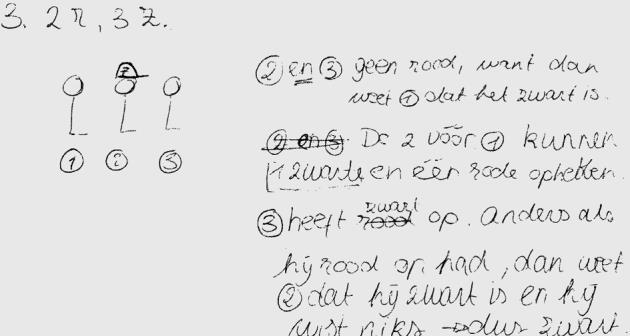 3. 2 r, 3 z.
z
① ② ③
② en ③ geen rood, want dan
weet ① dat het zwart is.
② en ③ De 2 vóór ① kunnen
1 zwarte en één rode ophebben.
③ heeft rood zwart op. Anders als
hij rood op had, dan weet
② dat hij zwart is en hij
wist niks → dus zwart.